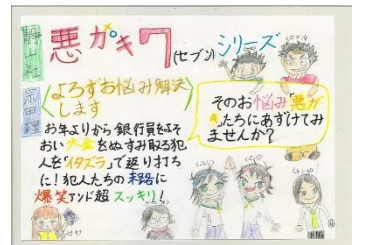 静山社
宗田理
悪ガキ7
(セブン)
シリーズ
よろずお悩み解決
します
お年よりから銀行員をよそ
おい大金をぬすみ取る犯
人を「イタズラ」で返り打ち
に!犯人たちの末路に
爆笑アンド超スッキリ!
そのお悩み悪ガ
キたちにあずけてみ
ませんか?